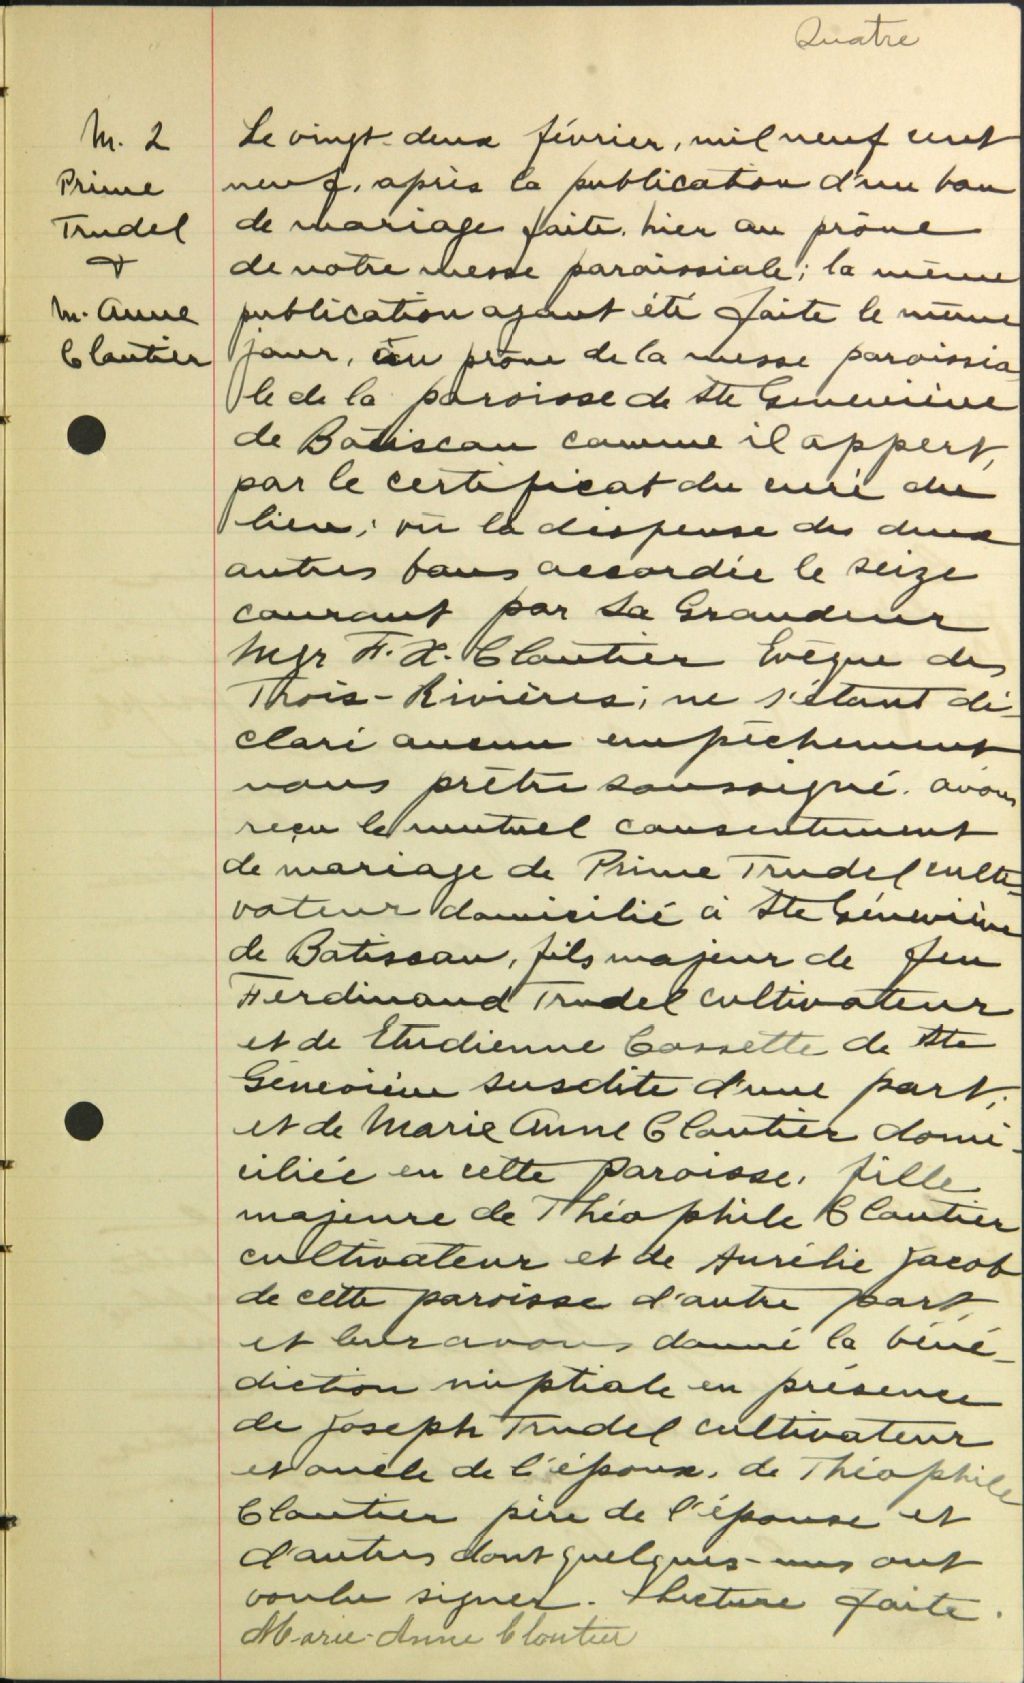 Quatre
M. 2
Prime
Trudel
&
M. Anne
Cloutier
Le vingt-deux février, mil neuf cent
neuf, après la publication d'un ban
de mariage faite, hier au prône
de notre messe paroissiale; la même
publication ayant été faite le même
jour, au prône de la messe paroissia
le de la paroisse de Ste Geneviève
de Batiscan comme il appert,
par le certificat du curé du
lieu; vu la dispense des deux
autres bans accordée le seize
courant par Sa Grandeur
Mgr F. X. Cloutier Evêque des
Trois-Rivières; ne s'étant dé-
claré aucun empêchement
nous prêtre soussigné. avons
reçu le mutuel consentement
de mariage de Prime Trudel culti-
vateur domicilié à Ste Géneviève
de Batiscan, fils majeur de feu
Ferdinand Trudel cultivateur
et de Etudienne Cossette de Ste
Géneviève susdite d'une part;
et de Marie Anne Cloutier domi-
ciliée en cette paroisse, fille
majeure de Théophile Cloutier
cultivateur et de Aurélie Jacob
de cette paroisse d'autre part,
et leur avons donné la béné-
diction nuptiale en présence
de Joseph Trudel cultivateur
et oncle de l'époux, de Théophile
Cloutier père de l'épouse et
d'autres dont quelques-uns ont
voulu signer. Lecture faite.
Marie-Anne Cloutier